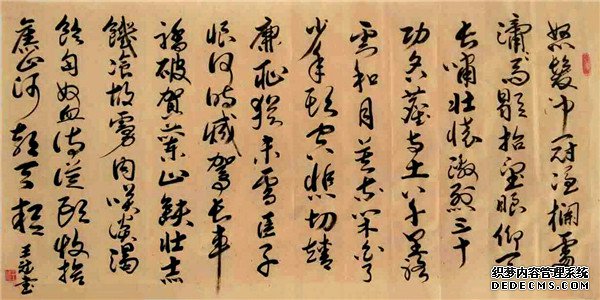 怒髮冲冠凭欄處
瀟雨歇抬望眼仰天
長嘯壯懷激烈三十
功名塵与土八千里路
雲和月莫等閑白了
少年頭空悲切靖
康耻猶未雪臣子
恨何時滅駕長車
踏破賀蘭山缺壯志
饑飡胡虜肉笑談渴
飲匈奴血待從頭收拾
舊山河朝天闕
织梦内容管理系统
DEDECMS.COM